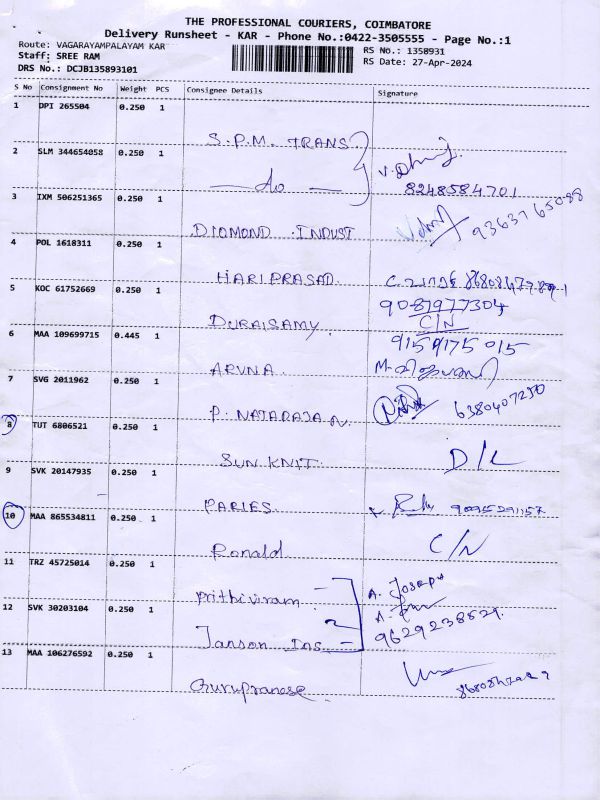 THE PROFESSIONAL COURIERS, COIMBATORE
Delivery Runsheet - KAR - Phone No.:0422-3505555 - Page No.:1
Route: VAGARAYAMPALAYAM KAR
RS No.: 1358931
Staff: SREE RAM
RS Date: 27-Apr-2024
DRS No.: DCJB135893101
S No Consignment No Weight PCS Consignee Details Signature
1 DPI 265504 0.250 1 S.P.M. TRANS
2 SLM 344654058 0.250 1 — do —
8248584701
3 IXM 506251365 0.250 1 DIOMOND INDUST
9363765088
4 POL 1618311 0.250 1 HARIPRASAD
5 KOC 61752669 0.250 1 DURAISAMY
C/N
6 MAA 109699715 0.445 1 ARUNA
7 SVG 2011962 0.250 1 P. NATARAJAN
6380407250
8 TUT 6806521 0.250 1 SUN KNIT D/L
9 SVK 20147935 0.250 1 PARIES
10 MAA 865534811 0.250 1 Ronald C/N
11 TRZ 45725014 0.250 1 Prithiviram
A. Joseph
12 SVK 30203104 0.250 1 Janson Ins
9629238529
13 MAA 106276592 0.250 1 Gurupranese